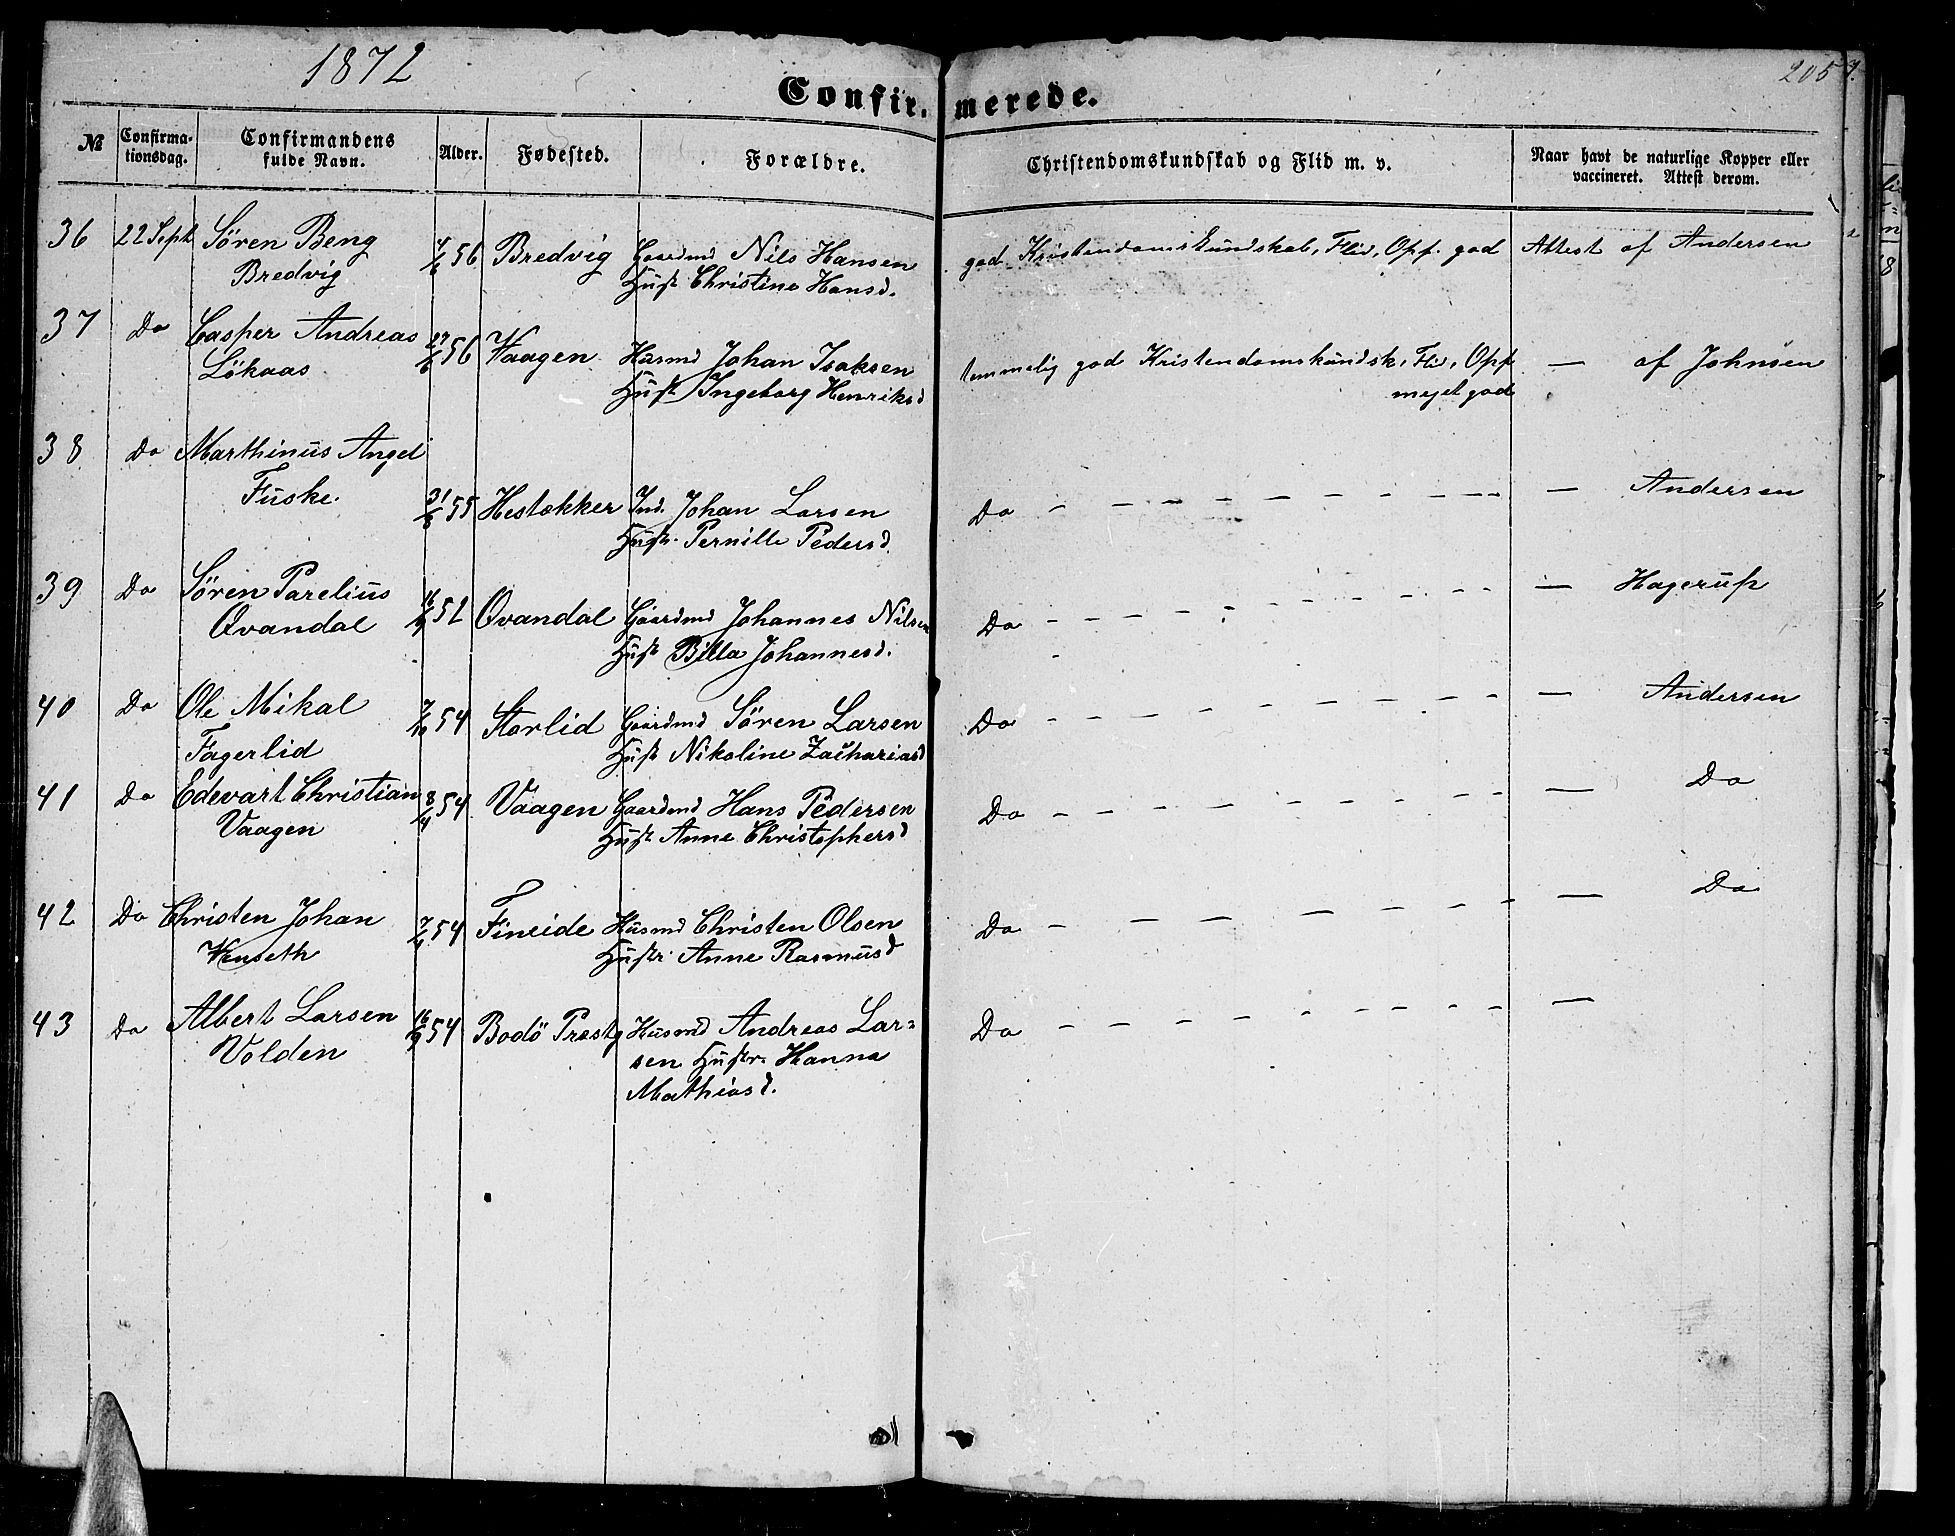 1872
205
Confirmerede.
№ Confirma-tionsdag. Confirmandens fulde Navn. Alder. Fødested. Forældre. Christendomskundskab og Flid m. v. Naar havt de naturlige Kopper eller vaccineret. Attest derom.
36 22 Sept Sören Beng 4/6 56 Bredvig Gaardmd Nils Hansen god Kristendomskundskab, Flid, Opf. god Attest af Andersen
Bredvig Hust Christine Hansd.
37 Do Casper Andreas 27/6 56 Vaagen Husmd Johan Isaksen temmelig god Kristendomskundsk, Flid, Opf — af Johnsen
Lökaas Hust Ingeborg Henriksd meget god
38 Do Marthinus Angel
Fuske 31/8 55 Hestekker Ind. Johan Larsen Do — — — — — — — Andersen
Hustr. Pernille Pedersd.
39 Do Sören Parelius 16/9 52 Qvandal Gaardmd Johannes Nilsen Do — — — — — — — Hagerup
Qvandal Hust Billa Johannesd.
40 Do Ole Mikal 7/10 54 Storlid Gaardmd Sören Larsen Do — — — — — — — Andersen
Fagerlid Hust Nikoline Zachariasd
41 Do Edevart Christian 8/4 54 Vaagen Gaardmd Hans Pedersen Do — — — — — — — Do
Vaagen Hust Anne Christophersd
42 Do Christen Johan 7/4 54 Fineide Husmd Christen Olsen Do — — — — — — — Do
Hustr. Anne Rasmusd
43 Do Albert Larsen 16/9 54 Bodö Præstg Husmd Andreas Lar- Do — — — — — — —
Volden sen Hustr. Hanna
Mathiasd.